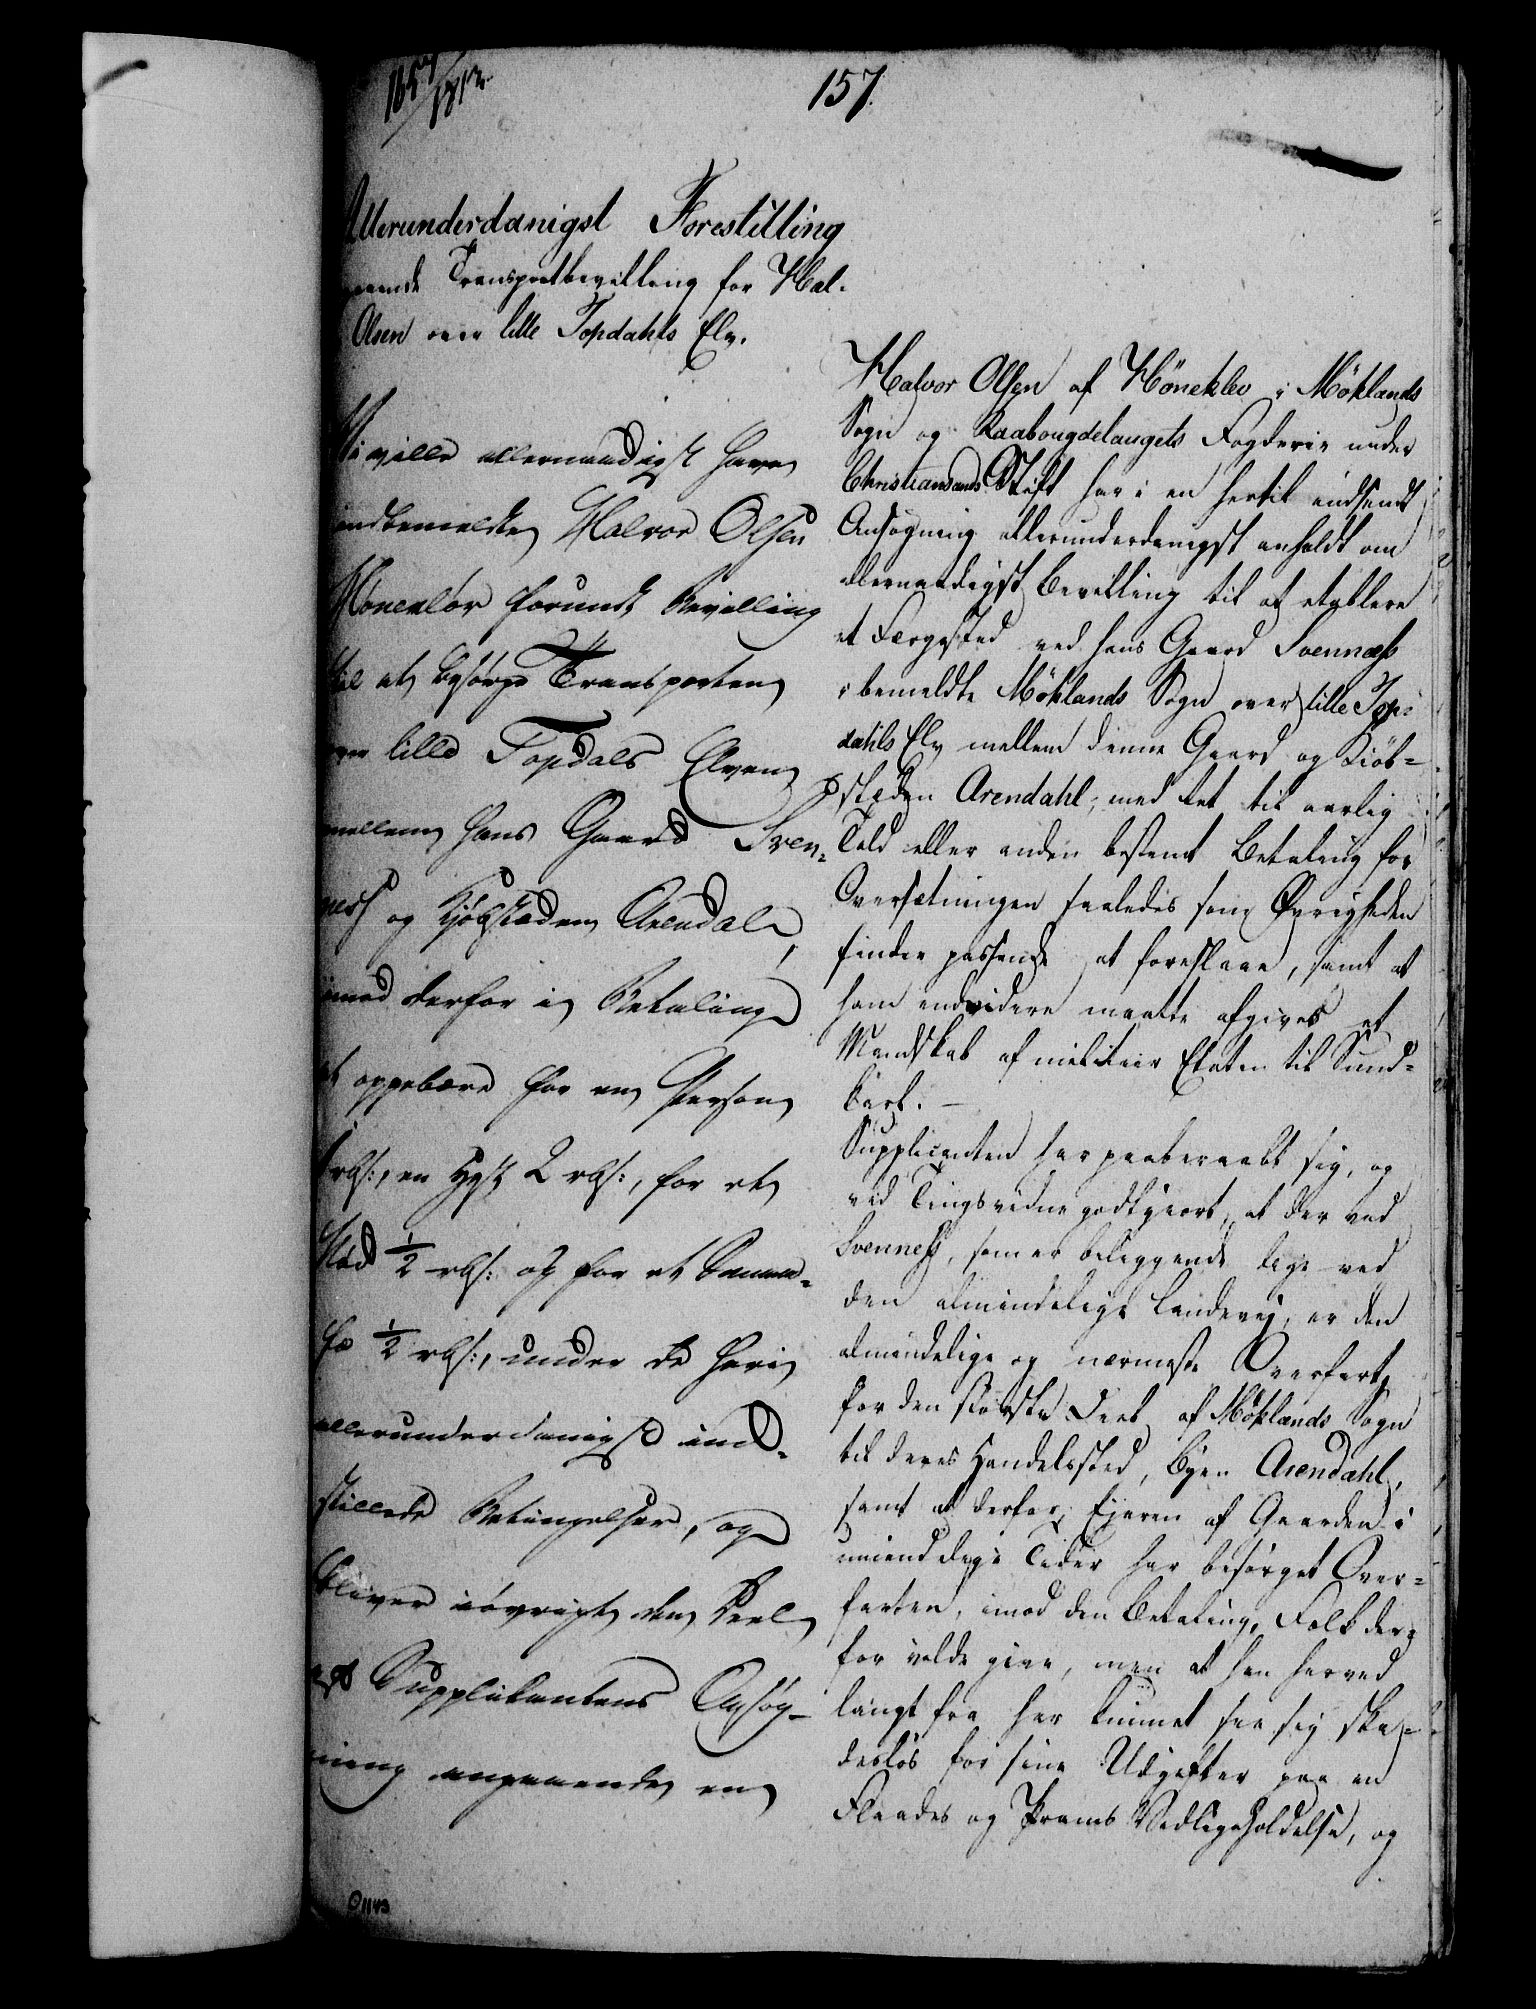 157.
Allerunderdanigst Forestilling
Transportbevilling for Hal-
Olsen over lille Topdahls Elv.
Vi ville allernaadigst have
indbemeldte Halvor Olsen
Høneklev forundt Bevilling
til at besørge Transporten
over lille Topdals Elven
mellem hans Gaard Sven-
ness og Kjøbstæden Arendal,
imod derfor i Betaling
at oppebære for en Person
rbs:, en Hest 2 rbs:, for et
Nød ½ rbs: og for et Smaa-
fæ ½ rbs:, under de heri
allerunderdanigst ind-
stillede Betingelser, og
bliver iøvrigt den Deel
af Supplikantens Ansøg-
ning angaaende en
Halvor Olsen af Höneklev i Möklands
Sogn og Raabougdelaugets Fogderie under
Christiansands Stift har i en hertil indsendt
Ansøgning allerunderdanigst anholdt om
allernaadigst Bevilling til at etablere
et Færgested ved hans Gaard Svennæss
i bemeldte Möklands Sogn over lille Top-
dahls Elv mellem denne Gaard og Kiöb-
stæden Arendahl, med Ret til aarlig
Told eller anden bestemt Betaling for
Oversætningen saaledes som Øvrigheden
finder passende at foreslaae, samt at
ham endvidere maatte afgives et
Mandskab af militair Etaten til Sund-
karl. —
Supplicanten har paaberaabt sig, og
ved Tingsvidne godtgiort, at der ved
Svenness, som er beliggende lige ved
den almindelige Landevej, er den
almindelige og nærmeste Overfart
for den største Deel af Möklands Sogn
til deres Handelssted, Byen Arendahl,
samt at derfor Ejeren af Gaarden i
umindelige Tider har besørget Over-
farten, imod den Betaling, Folk der-
for vilde give, men at han herved
langt fra har kunnet see sig ska-
desløs for sine Udgifter paa en
Flaades og Prams Vedligeholdelse, og